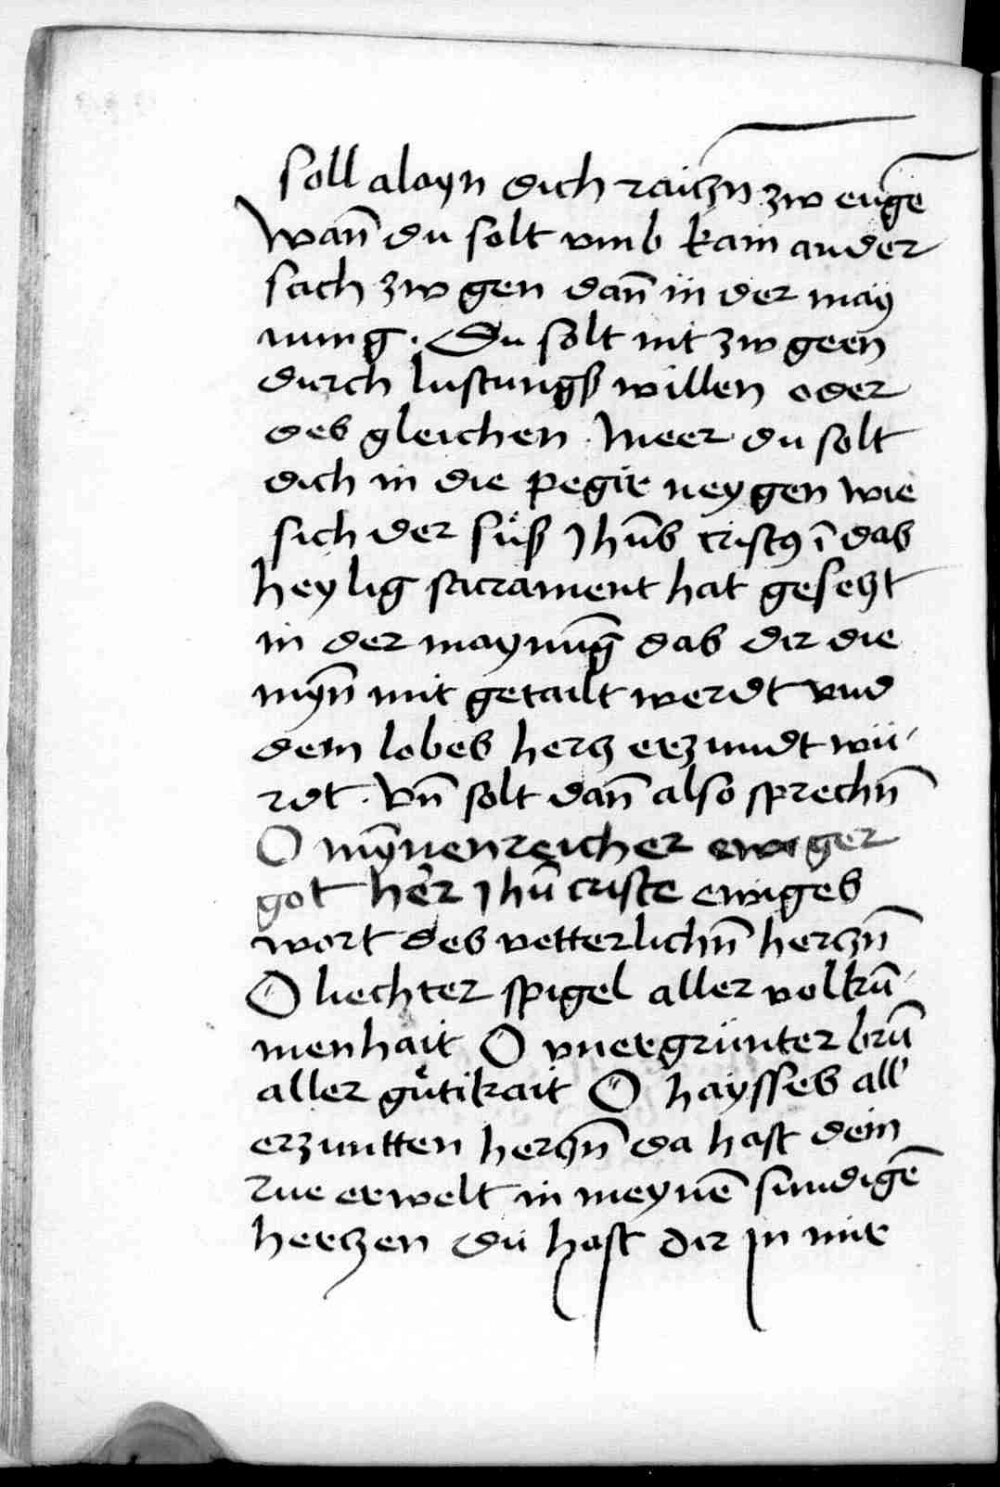 soll alayn dich raiczn̄ zw eugē
Wan̄ du solt vmb kain ander
sach zw gen dan̄ in der may
nung. Du solt nit zw geen
durch lustungß willen oder
des gleichen. Meer du solt
dich in die pegir neygen wie
sich der süß Jhūs cristꝰ ī das
heylig sacrament hat geseczt
in der maynūg das dir die
myn̄ mit getailt werdt vnd
dem lobes hercz erzundt wü-
rdt. Vn̄ solt dan̄ also sprechn̄
O mȳnenreicher ewiger
got her Jhū criste ewiges
wort des vetterlichn̄ herczn̄
O liechter spigel aller volkū-
menhait O vnergrünter brū
aller gütikait O haysses all
erzuntten herczn̄ da hast dein
rue erwelt in meynē sundigē
herczen du hast dir in mir